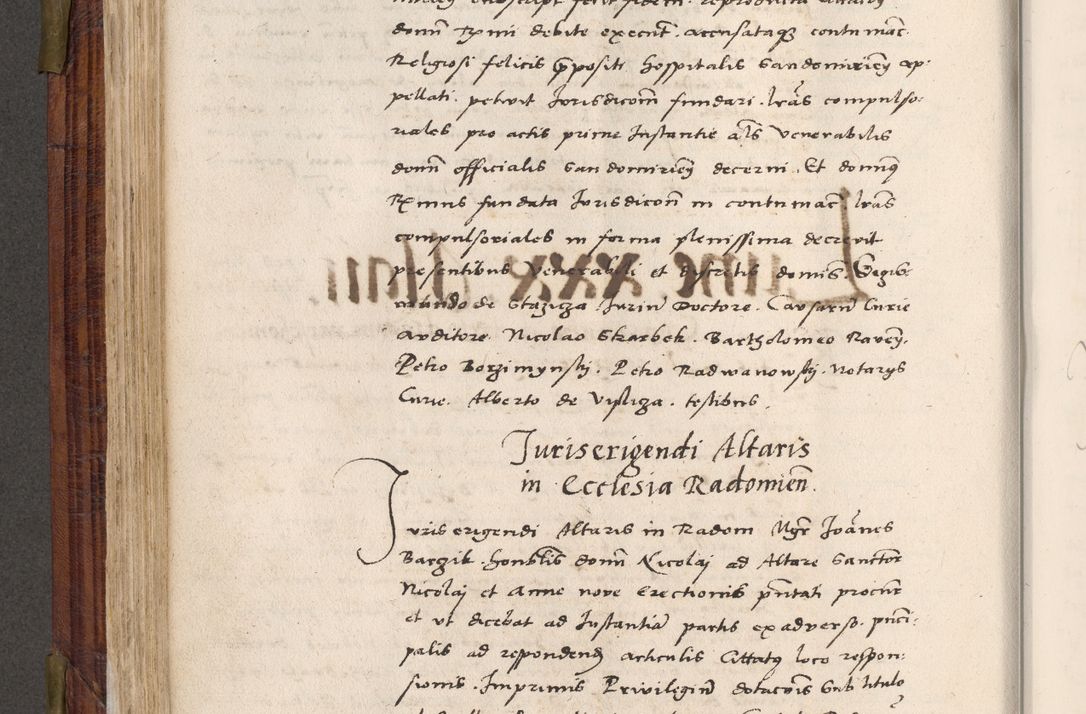 domĩ Rx̃mi debite execut̃. accusataq̃ contumac.
Religiosi felicis p̃positi hospitalis Sandomirien̄ ap:
pellati. petivit Jurisdicom̃ fundari. lr̃as compulso:
riales pro actis prime Instantie al̃s Venerabilis
domĩ officialis Sandomirien̄ decerni. Et domnq̃
Rx̃mus fundata Jurisdicoñ in contumac̃ lr̃as
compulsoriales in forma plenissima decrevit
presentibus Venerabili et discretis domĩs. Sigis:
mundo de Stazicza Juriũ Doctore. Causarũ Curie
Auditore. Nicolao Skarbek. Bartholomeo Raven̄.
Petro Borzimynski. Petro Radwanowski. Notarys
Curie. Alberto de Vislicza. testibus.
Juris erigendi Altaris
in Ecclesia Radomieñ.
Juris erigendi Altaris in Radom Mgr̃ Joãnes
Barzik. honbl̃is domĩ Nicolaj ad Altare Sanctor̃
Nicolaj et Anne nove Erectionis p̃ntati procur̃
et ut dicebat ad Instantiã partis ex adverso. princi:
palis ad respondend̃ articulis Cittatq̃ loco respon:
sionis. Imprimis Privilegiũ dotacõis Sub titulo